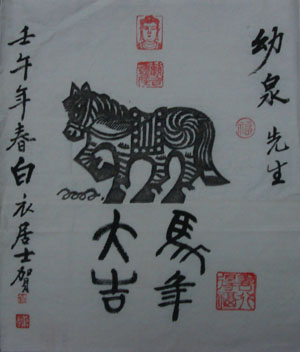 幼泉先生
馬年
大吉
壬午年春白衣居士賀
2002